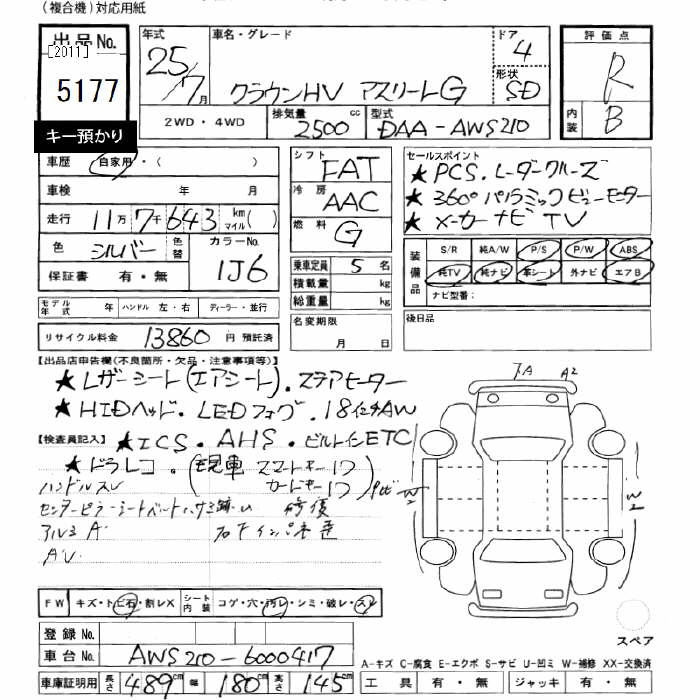 (複合機)対応用紙
出品No.
[2011]
5177
キー預かり
年式
25/7月
車名・グレード
クラウンHV アスリートG
ドア
4
形状
SD
評価点
R
内装
B
2WD・4WD
排気量
2500cc
型式
DAA-AWS210
車歴
自家用・( )
車検 年 月
走行 11万7千643 km マイル( )
色 シルバー 色替
カラーNo.
1J6
保証書 有・無
モデル年式 年 ハンドル 左・右 ディーラー・並行
リサイクル料金 13860 円 預託済
シフト FAT
冷房 AAC
燃料 G
乗車定員 5 名
積載量 kg
総重量 kg
名変期限
月 日
セールスポイント
★ PCS.レーダークルーズ
★ 360°パノラミックビューモニター
★ メーカーナビTV
装備品
S/R 純A/W P/S P/W ABS
純TV 純ナビ 革シート 外ナビ エアB
ナビ型番:
後日品
【出品店申告欄(不良箇所・欠品・注意事項等)】
★ レザーシート(エアシート).ステアヒーター
★ HIDヘッド・LEDフォグ.18インチAW
【検査員記入】 ★ICS・AHS・ビルトインETC
★ドラレコ.(現車 スマートキー1ケ
カードキー1ケ)
ハンドルスレ
センターピラーシートベルトハサミ跡 修復
アルミA
AU
A A2
W2
W2
FW キズ・トビ石・割レX シート内装 コゲ・穴・汚レ・シミ・破レ・スレ
登録No.
車台No. AWS210-6000417
車庫証明用 長さ 489cm 幅 180cm 高さ 145cm
スペア
A-キズ C-腐食 E-エクボ S-サビ U-凹ミ W-補修 XX-交換済
工具 有・無 ジャッキ 有・無